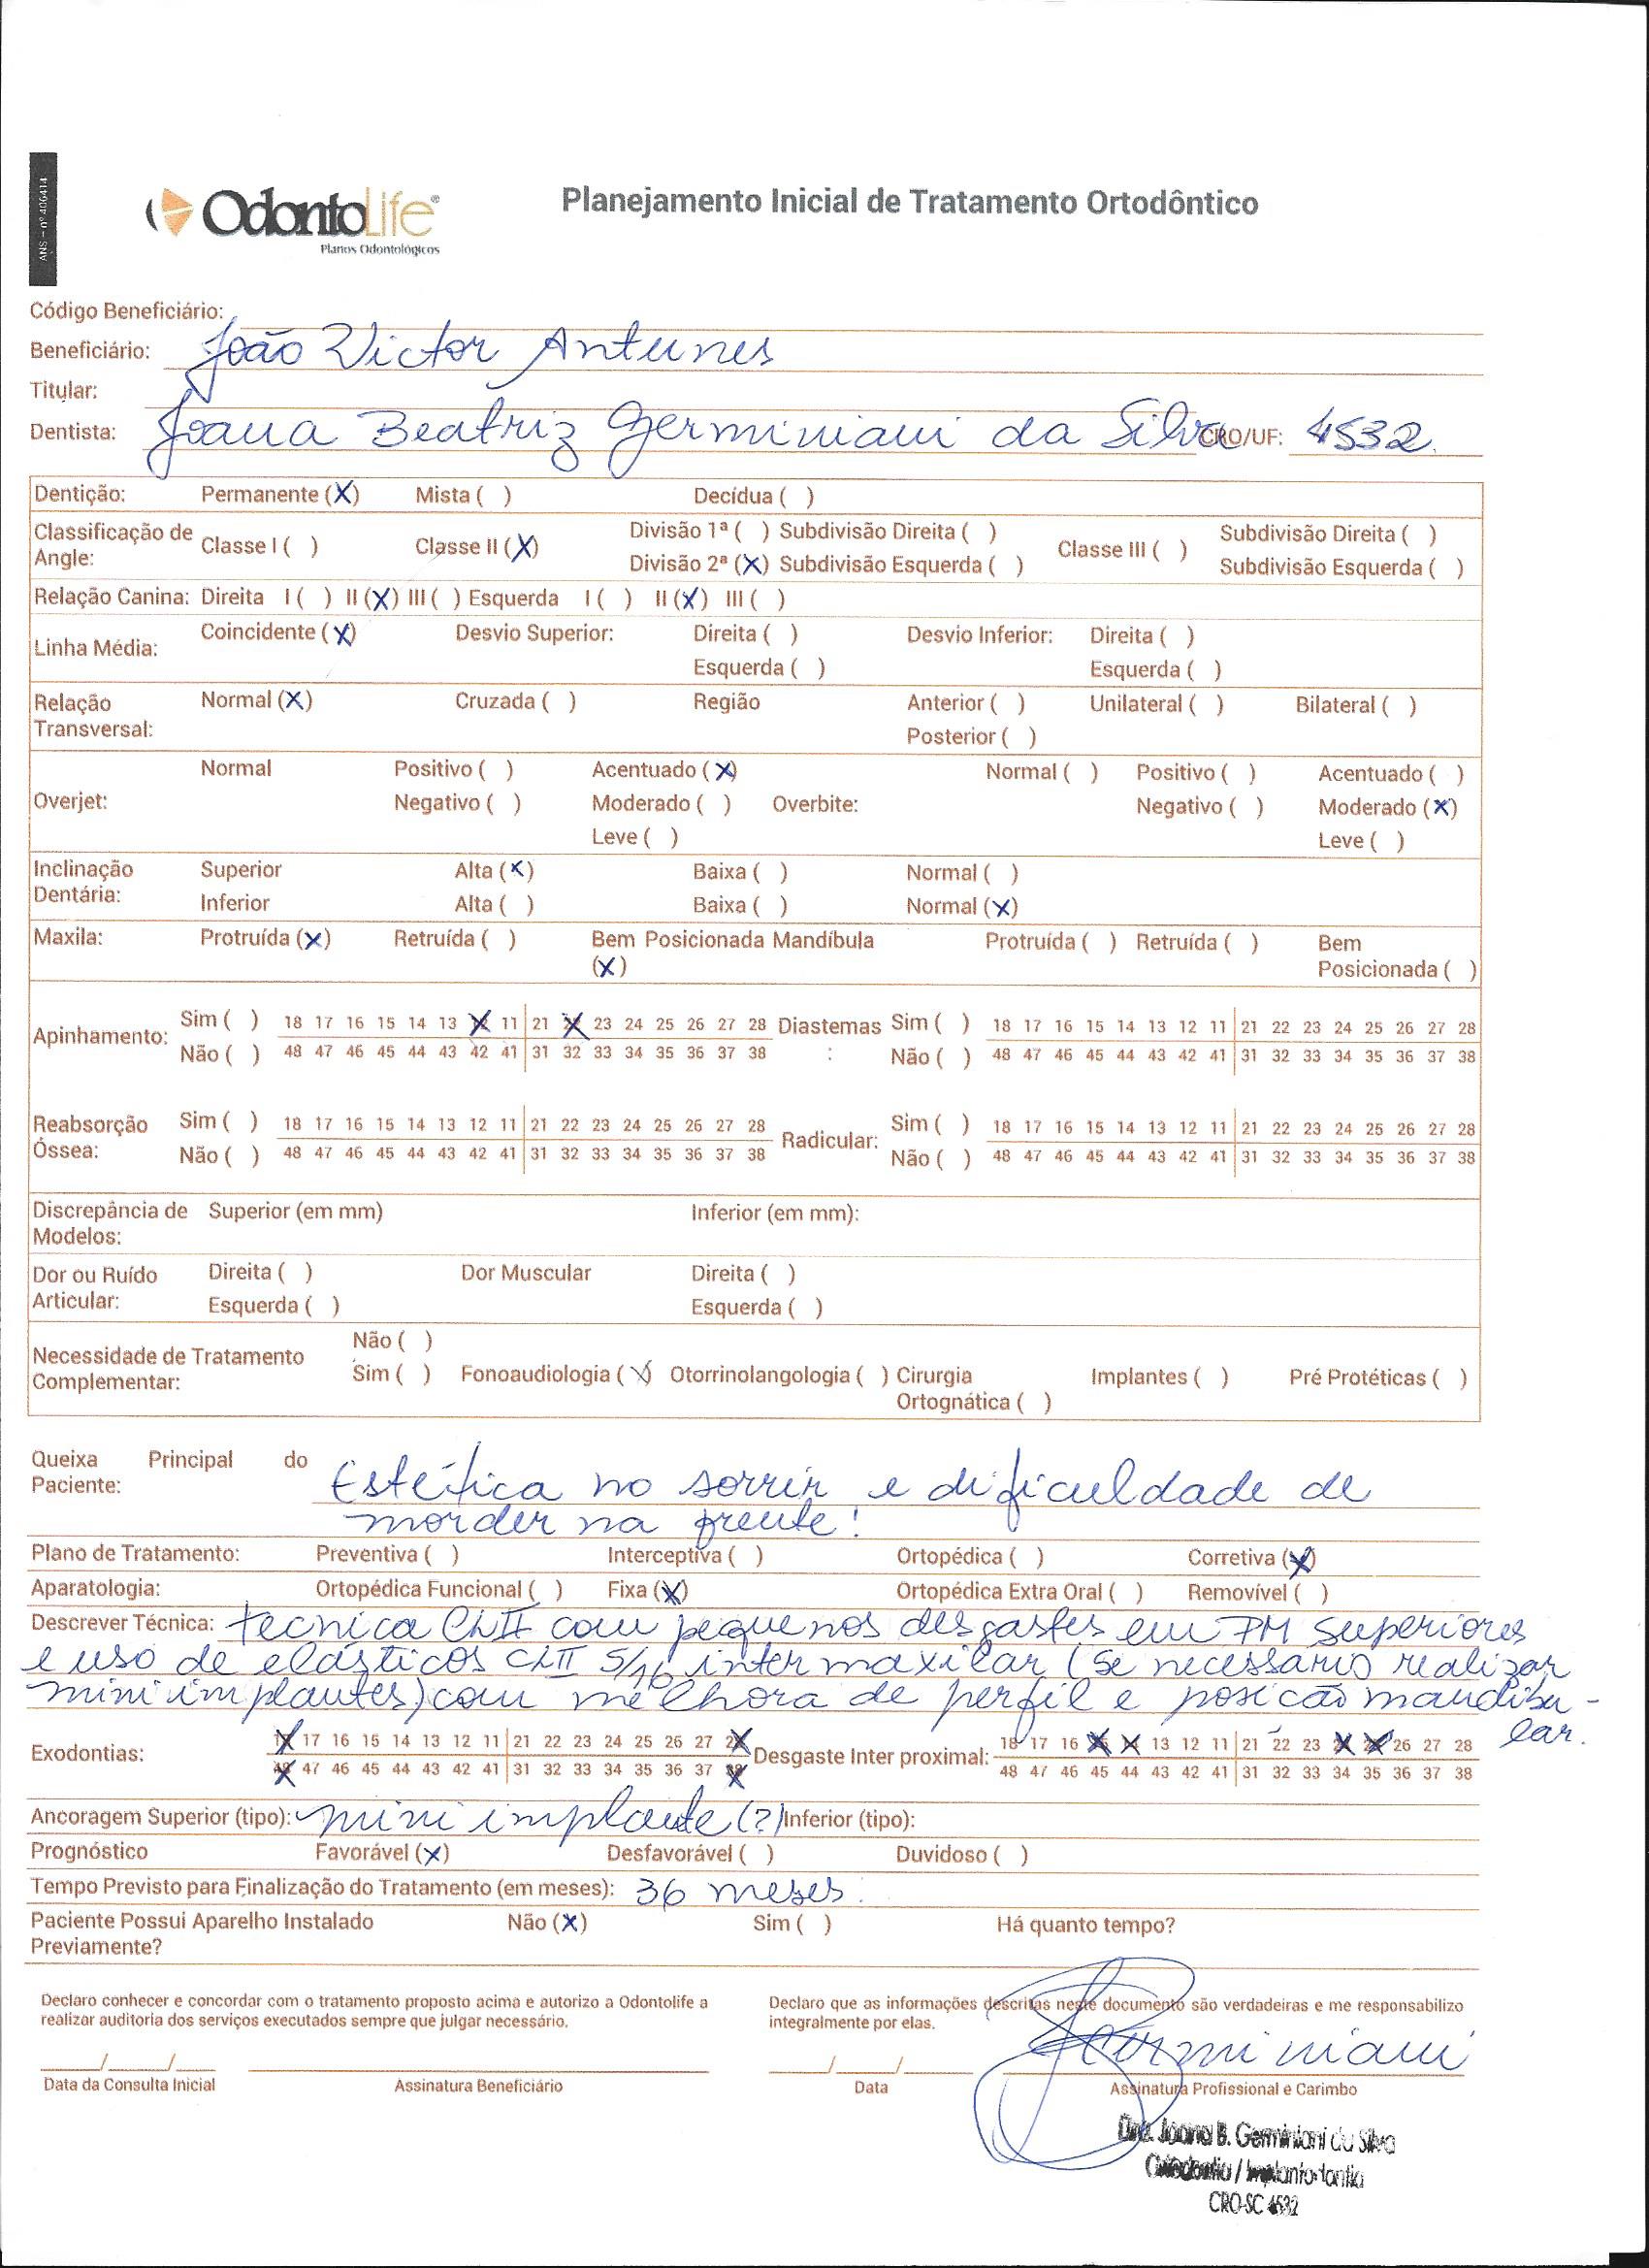 ANS - nº 406414
OdontoLife®
Planos Odontológicos
Planejamento Inicial de Tratamento Ortodôntico
Código Beneficiário:
Beneficiário: João Victor Antunes
Titular:
Dentista: Joana Beatriz Germiniani da Silva CRO/UF: 4532.
Dentição: Permanente (X) Mista ( ) Decídua ( )
Classificação de Angle: Classe I ( ) Classe II (X) Divisão 1ª ( ) Subdivisão Direita ( ) Classe III ( ) Subdivisão Direita ( )
Divisão 2ª (X) Subdivisão Esquerda ( ) Subdivisão Esquerda ( )
Relação Canina: Direita I ( ) II (X) III ( ) Esquerda I ( ) II (X) III ( )
Linha Média: Coincidente (X) Desvio Superior: Direita ( ) Desvio Inferior: Direita ( )
Esquerda ( ) Esquerda ( )
Relação Transversal: Normal (X) Cruzada ( ) Região Anterior ( ) Unilateral ( ) Bilateral ( )
Posterior ( )
Normal Positivo ( ) Acentuado (X) Normal ( ) Positivo ( ) Acentuado ( )
Overjet: Negativo ( ) Moderado ( ) Overbite: Negativo ( ) Moderado (X)
Leve ( ) Leve ( )
Inclinação Dentária: Superior Alta (X) Baixa ( ) Normal ( )
Inferior Alta ( ) Baixa ( ) Normal (X)
Maxila: Protruída (X) Retruída ( ) Bem Posicionada (X) Mandíbula Protruída ( ) Retruída ( ) Bem Posicionada ( )
Apinhamento: Sim ( ) 18 17 16 15 14 13 12 11 21 22 23 24 25 26 27 28 Diastemas : Sim ( ) 18 17 16 15 14 13 12 11 21 22 23 24 25 26 27 28
Não ( ) 48 47 46 45 44 43 42 41 31 32 33 34 35 36 37 38 Não ( ) 48 47 46 45 44 43 42 41 31 32 33 34 35 36 37 38
Reabsorção Óssea: Sim ( ) 18 17 16 15 14 13 12 11 21 22 23 24 25 26 27 28 Radicular: Sim ( ) 18 17 16 15 14 13 12 11 21 22 23 24 25 26 27 28
Não ( ) 48 47 46 45 44 43 42 41 31 32 33 34 35 36 37 38 Não ( ) 48 47 46 45 44 43 42 41 31 32 33 34 35 36 37 38
Discrepância de Modelos: Superior (em mm) Inferior (em mm):
Dor ou Ruído Articular: Direita ( ) Dor Muscular Direita ( )
Esquerda ( ) Esquerda ( )
Necessidade de Tratamento Complementar: Não ( )
Sim ( ) Fonoaudiologia (X) Otorrinolangologia ( ) Cirurgia Ortognática ( ) Implantes ( ) Pré Protéticas ( )
Queixa Principal do Paciente: Estética no sorrir e dificuldade de
morder na frente!
Plano de Tratamento: Preventiva ( ) Interceptiva ( ) Ortopédica ( ) Corretiva (X)
Aparatologia: Ortopédica Funcional ( ) Fixa (X) Ortopédica Extra Oral ( ) Removível ( )
Descrever Técnica: tecnica ClII com pequenos desgastes em PM superiores
e uso de elásticos ClII 5/16 intermaxilar (se necessario realizar
mini implantes) com melhora de perfil e posicão mandibu-
lar.
Exodontias: 18 17 16 15 14 13 12 11 21 22 23 24 25 26 27 28 Desgaste Inter proximal: 18 17 16 15 14 13 12 11 21 22 23 24 25 26 27 28
48 47 46 45 44 43 42 41 31 32 33 34 35 36 37 38 48 47 46 45 44 43 42 41 31 32 33 34 35 36 37 38
Ancoragem Superior (tipo): mini implante (?) Inferior (tipo):
Prognóstico Favorável (X) Desfavorável ( ) Duvidoso ( )
Tempo Previsto para Finalização do Tratamento (em meses): 36 meses.
Paciente Possui Aparelho Instalado Previamente? Não (X) Sim ( ) Há quanto tempo?
Declaro conhecer e concordar com o tratamento proposto acima e autorizo a Odontolife a
realizar auditoria dos serviços executados sempre que julgar necessário.
Declaro que as informações descritas neste documento são verdadeiras e me responsabilizo
integralmente por elas.
Germiniani
___/___/___
Data da Consulta Inicial
Assinatura Beneficiário
___/___/___
Data
Assinatura Profissional e Carimbo
Dra. Joana B. Germiniani da Silva
Ortodontia / Implantodontia
CRO-SC 4532